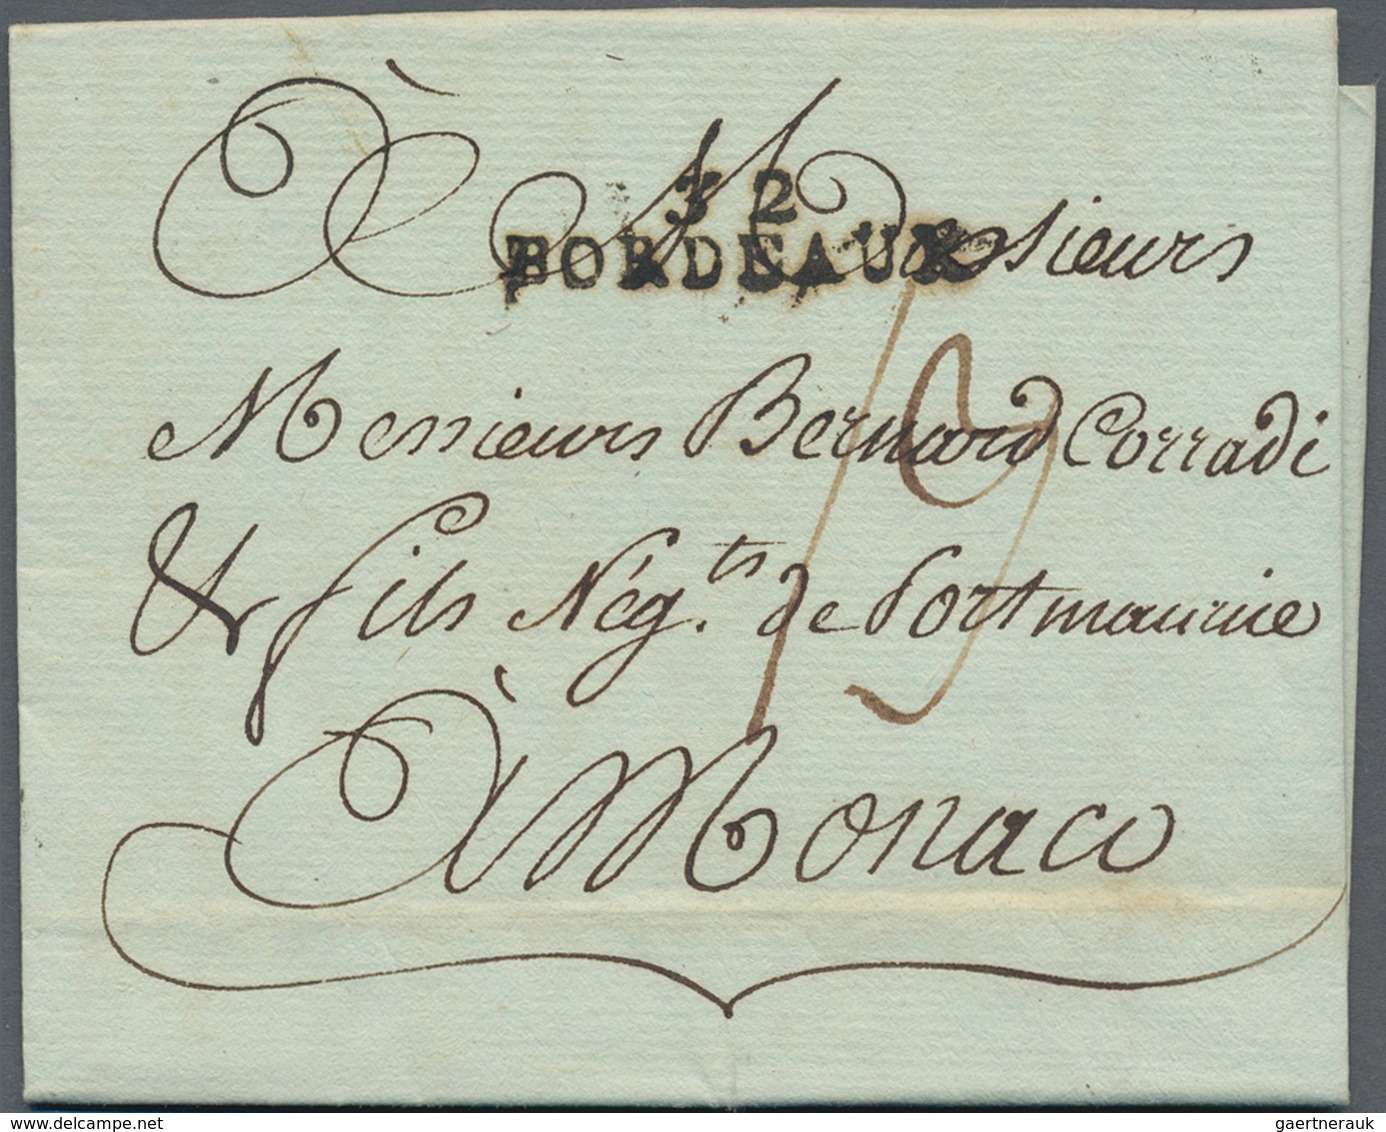 À Messieurs
32
BORDEAUX
Messieurs Bernard Corradi
& fils Nég.ts de Portmaurice
19
À Monaco
www.delcampe.net
gaertnerauk